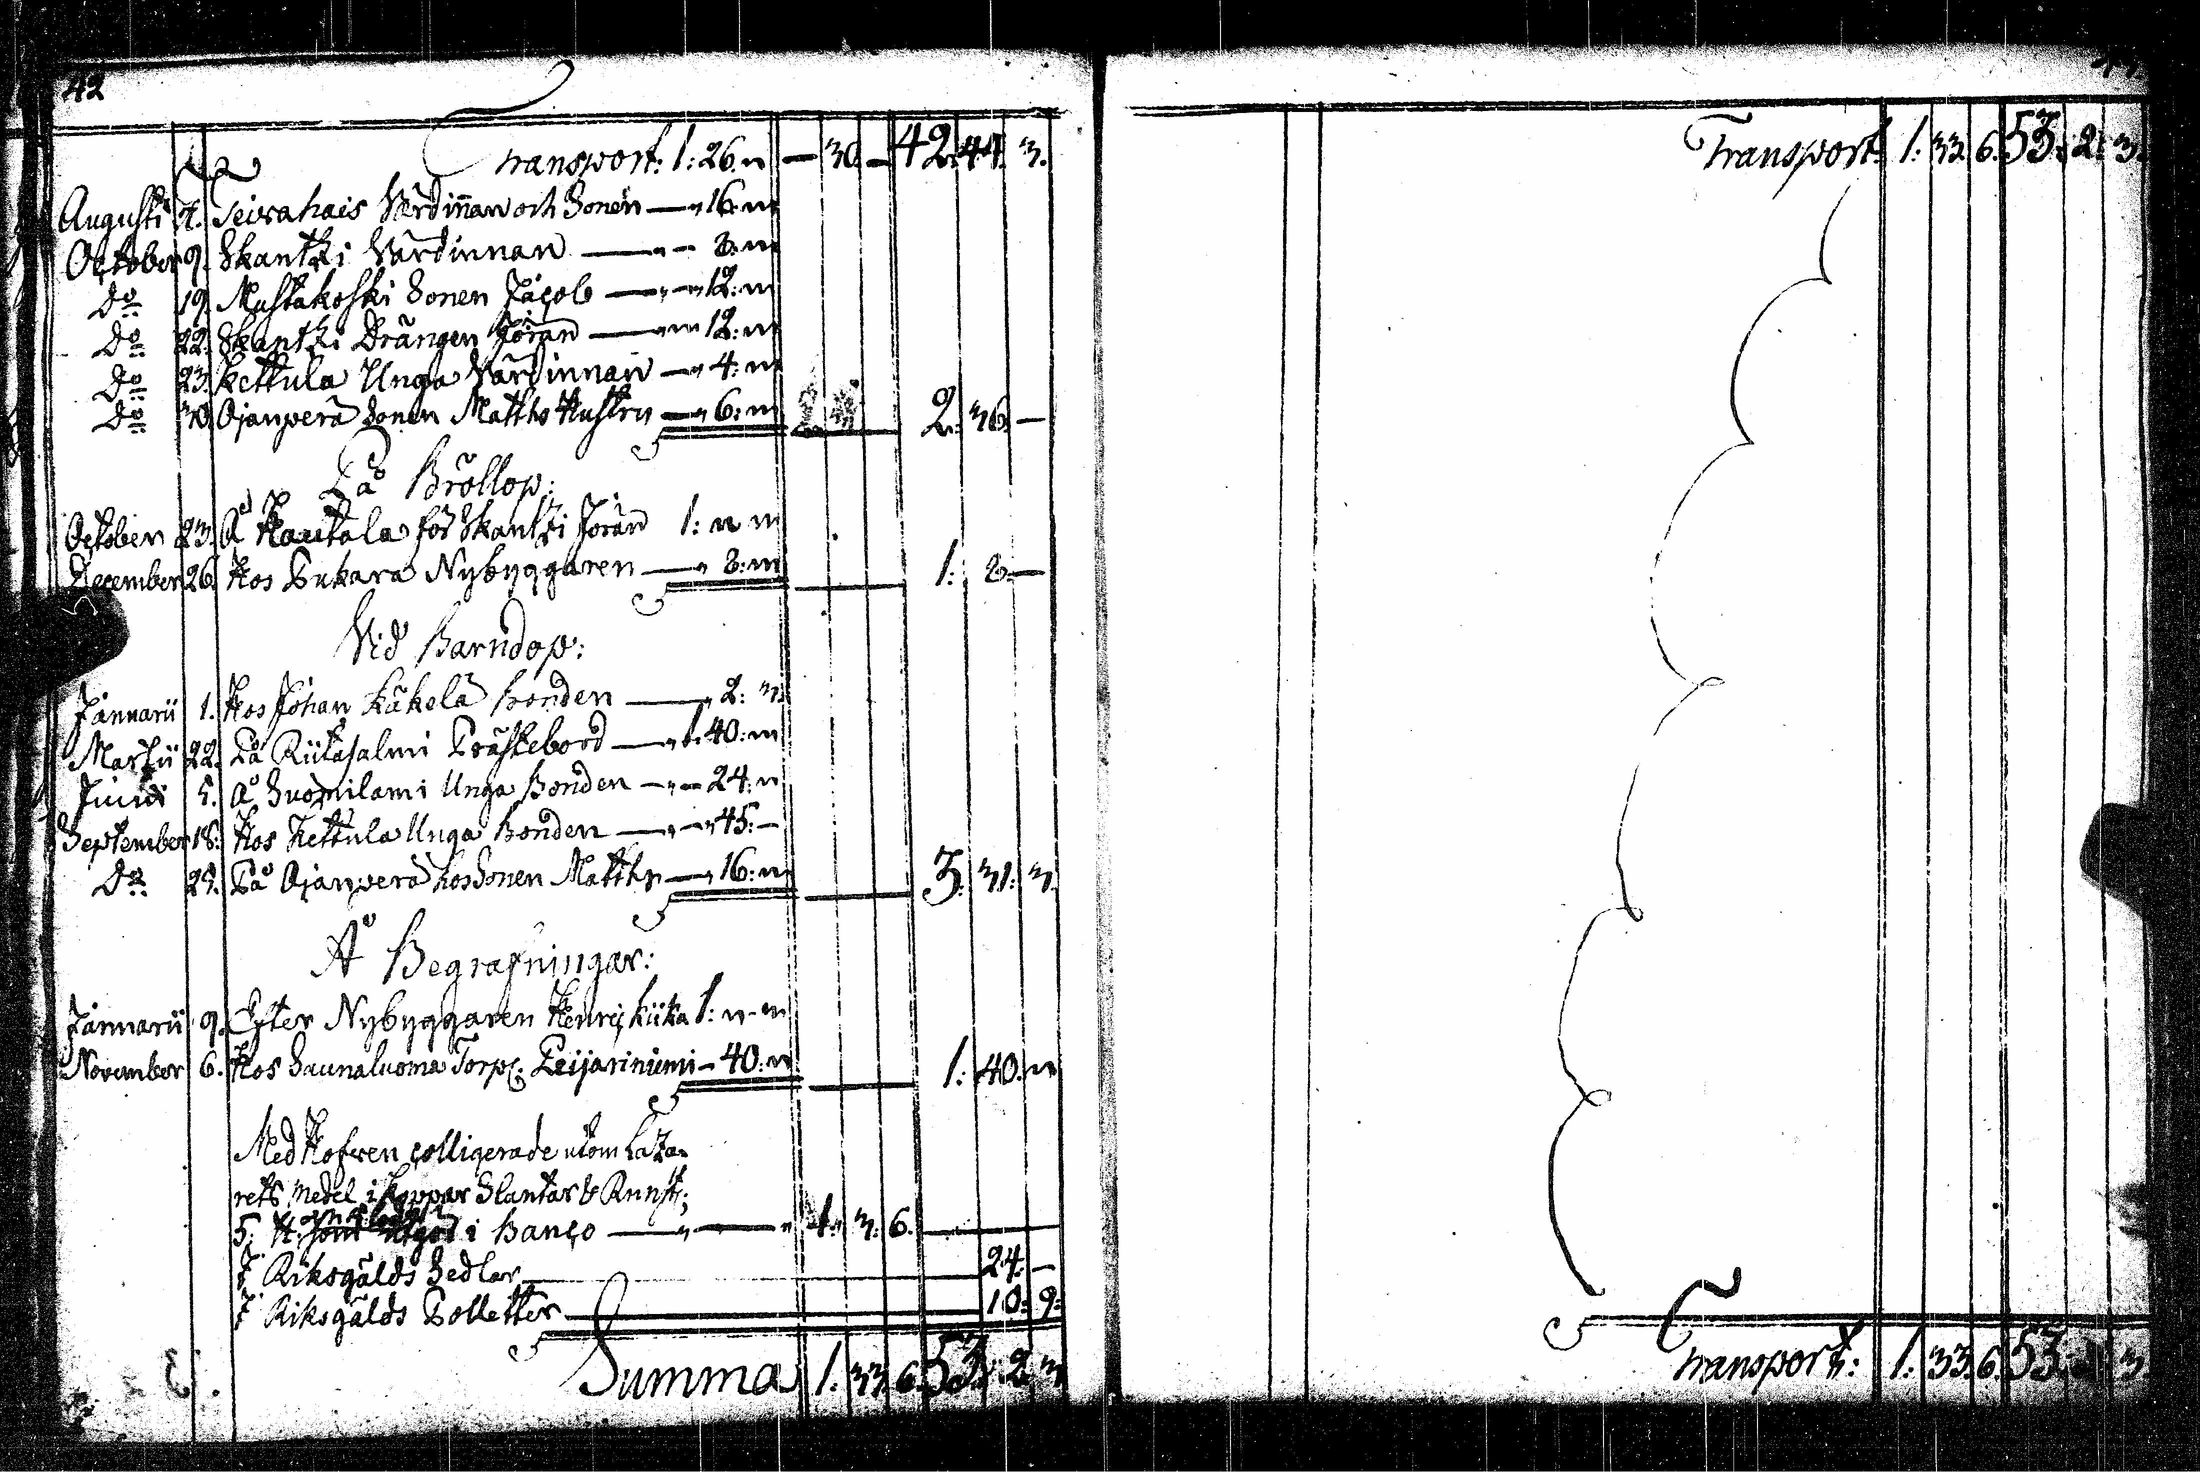 42
Transport: 1: 26. „ — 30. — 42. 41. 3.
Augusti 4. Seivrahais Värdinnan och Sonen — „ 16: „
October 9. Skantzi Värdinnan — „ — 8: „
Do 19. Mustakoski Sonen Jacob — „ — 12: „
Do 22. Skantzi Drängen Jöran — „ 12: „
Do 23. Kettula Unga Värdinnan — „ 4: „
Do 30. Ojanperä Sonen Matths Hustru — „ 6: „ 2. 36. —
På Bröllop:
October 23. Å Hautala för Skantzi Jöran 1: „ „
December 26. Hos Pukara Nybyggaren — „ 8: „ 1: 8. —
Vid Barndop:
Januarii 1. Hos Johan Käkelä bonden — „ 2: 3.
Martii 22. På Rütasalmi Prästebord — „ 1: 40: „
Junii 5. Å Suomilami Unga Bonden — „ — 24: „
September 18. Hos Kettula Unga Bonden — „ — „ 45: —
Do 25. På Ojanperä hos Sonen Matths — „ 16: „ 3: 31: 3.
Å Begrafningar:
Januarii 9. Efter Nybyggaren Henric Kiika 1: „ „
November 6. Hos Saunaluoma Torp. Peijariniemi — 40: „ 1: 40. „
Med Hofven colligerade utom Laza-
rets Medel i Koppar Slantar & Runst:
5: utgör i Banco — „ — „ 1. 3: 6.
Riksgälds Sedlar — 24: —
Riksgälds Polletter — 10: 9:
Summa 1: 33. 6. 53. 2. 3.
Transport: 1: 33. 6. 53. 2: 3.
Transport: 1: 33. 6. 53. 3.